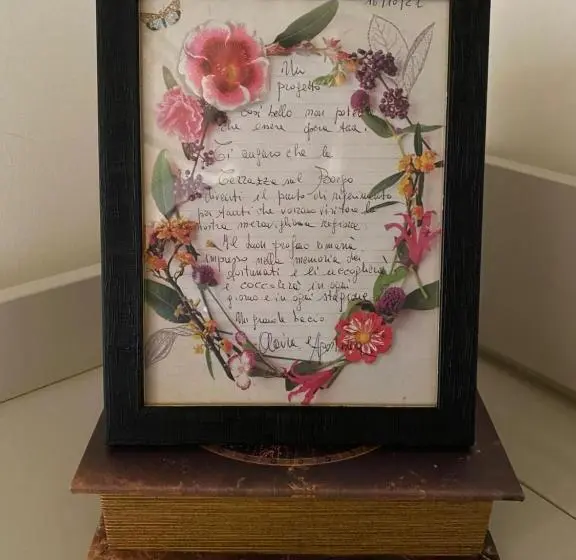 10/10/22
Un
progetto
così bello non poteva
che essere opera tua.
Ti auguro che la
Terrazza sul Borgo
diventi il punto di riferimento
per tanti che vorranno visitare la
nostra meravigliosa regione.
Il suo profumo rimarrà
impresso nella memoria dei
fortunati e li accoglierà
e coccolerà in ogni
giorno e in ogni stagione
Un grande bacio